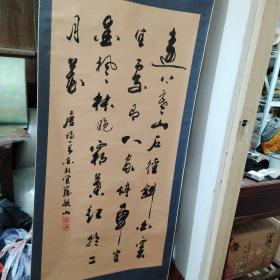 遠上寒山石徑斜白雲
生處有人家停車坐
愛楓林晚霜葉紅於二
月花